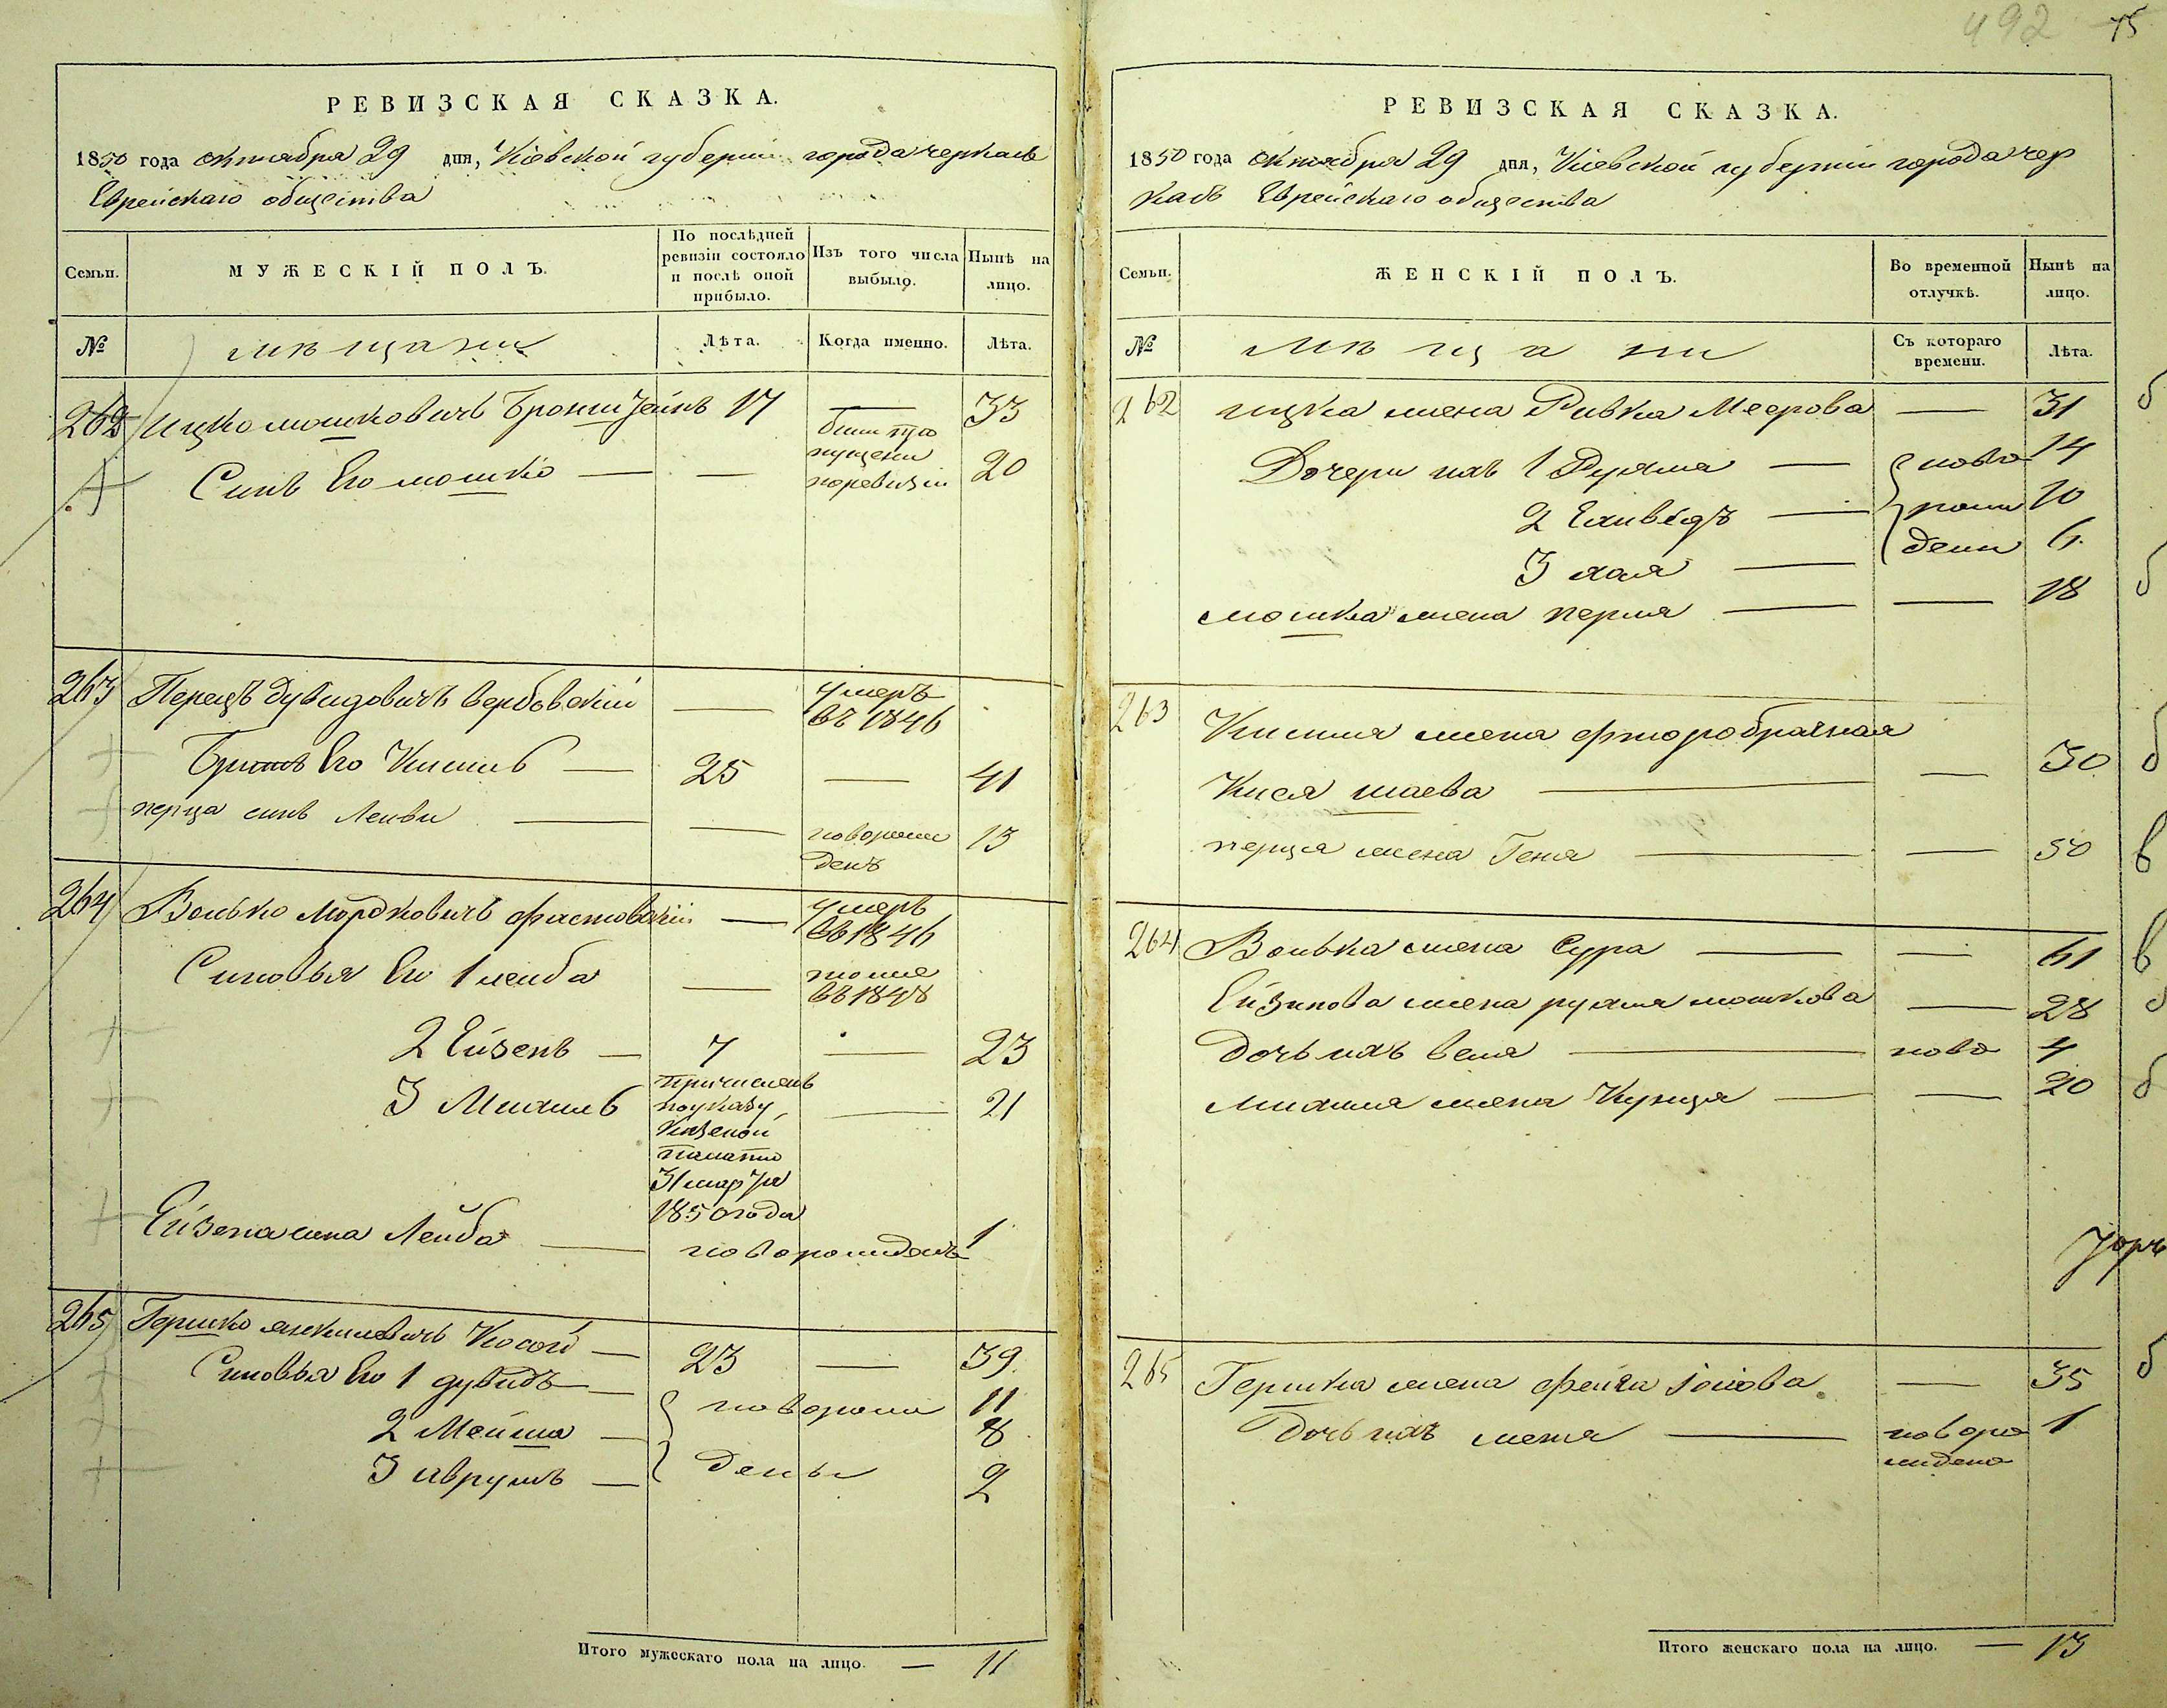 492 75
РЕВИЗСКАЯ СКАЗКА.
1850 года октября 29 дня, Кіевской губерніи города черкасъ
Еврейскаго общества
Семьи.
МУЖЕСКІЙ ПОЛЪ.
По послѣдней ревизіи состояло и послѣ оной прибыло.
Изъ того числа выбыло.
Нынѣ на лицо.
№
мѣщане
Лѣта.
Когда именно.
Лѣта.
262 Ицко мошковичъ Бронштейнъ 17 — 33
Синъ Его мошко — — били пропущени поревизіи 20
263 Перецъ дувидовичъ вербовскій — умеръ въ 1846
Братъ Его Кисиль — 25 — 41
перца синъ Лейви — — новорожденъ 13
264 Волько Мордковичъ фастовскій — умеръ въ 1846
Синовья Его 1 лейба — тоже въ 1848
2 Ейзенъ — 7 — 23
3 Михиль причисленъ поуказу Казеной палати 31 марта 1850 года — 21
Ейзена сина Лейба — новорожденъ 1
265 Гершко янкилевичъ Косой — 23 — 39
Синовья Его 1 дувидъ — новорож 11
2 Мейша — 8
3 аврумъ — дены 2
Итого мужескаго пола на лицо. — 11
РЕВИЗСКАЯ СКАЗКА.
1850 года октября 29 дня, Кіевской губерніи города чер
касъ Еврейскаго общества
Семьи.
ЖЕНСКІЙ ПОЛЪ.
Во временной отлучкѣ.
Нынѣ на лицо.
№
мѣщане
Съ котораго времени.
Лѣта.
262 ицка жена Ривка Меерова — 31
Дочери ихъ 1 Рухля — ново 14
2 — рож 10
3 хая — дени 6
мошка жена перля — — 18
263 Кисиля жена фторобрачная
Кися шаева — — 30
перца жена Геня — — 50
264 Волька жена Сура — — 61
Ейзинова жена рухля мошкова — 28
дочь ихъ веля — ново 4
михиля жена Куница — — 20
265 Гершка жена фейга — 35
Дочь ихъ женя — новорождена 1
Итого женскаго пола на лицо. — 13